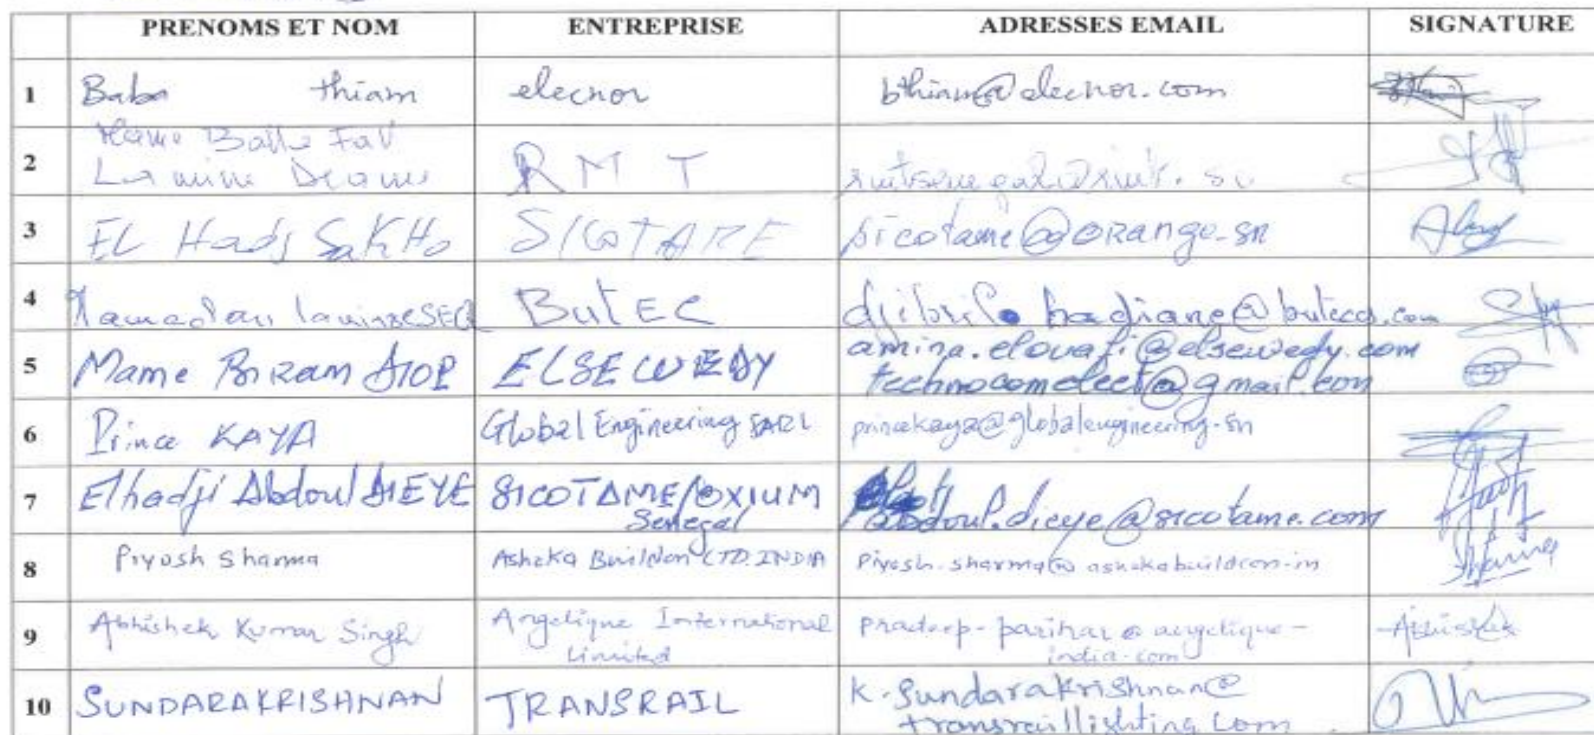 PRENOMS ET NOM ENTREPRISE ADRESSES EMAIL SIGNATURE
1 Baba thiam elecnor bthiam@elecnor.com
Mame Balla Fall
2 Lamine Drame RMT rmtsenegal@rmt.sn
3 EL Hadj SaKHo SICOTAME sicotame@orange.sn
4 lamine SECK ButEC djibril.badiane@butecd.com
5 Mame Biram DIOP ELSEWEDY amina.elouafi@elsewedy.com
technocomelect@gmail.com
6 Prince KAYA Global Engineering SARL princekaya@globalengineering.sn
7 Elhadji Abdoul DIEYE SICOTAME/OXIUM abdoul.dieye@sicotame.com
Senegal
8 Piyush Sharma Ashoka Buildcon LTD.INDIA Piyush.sharma@ashokabuildcon.in
9 Abhishek Kumar Singh Angelique International pradeep.parihar@angelique-
Limited india.com
10 SUNDARAKRISHNAN TRANSRAIL K.Sundarakrishnan@
transraillighting.com